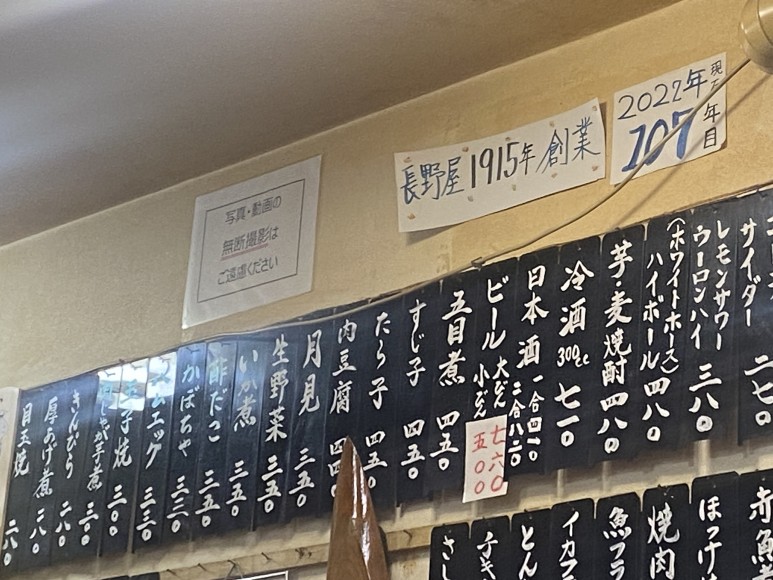 現在
2022年
107年目
長野屋1915年創業
写真・動画の
無断撮影は
ご遠慮ください
サイダー 二七〇
レモンサワー
ウーロンハイ 三八〇
(ホワイトホース)
ハイボール 四八〇
芋・麦焼酎 四八〇
冷酒 300cc 七一〇
日本酒 一合四一〇
二合八二〇
ビール 大びん 七六〇
小びん 五〇〇
五目煮 四五〇
すじ子 四五〇
たら子 四五〇
肉豆腐
月見 三五〇
生野菜 三五〇
いか煮 三五〇
酢だこ 三五〇
かぼちゃ 三三〇
ハムエッグ 三三〇
玉子焼 三〇〇
じゃが芋煮 三〇〇
きんぴら 二八〇
厚あげ煮 二八〇
目玉焼 二六〇
赤魚
ほっけ
焼肉
魚フラ
イカフ
とん
さし